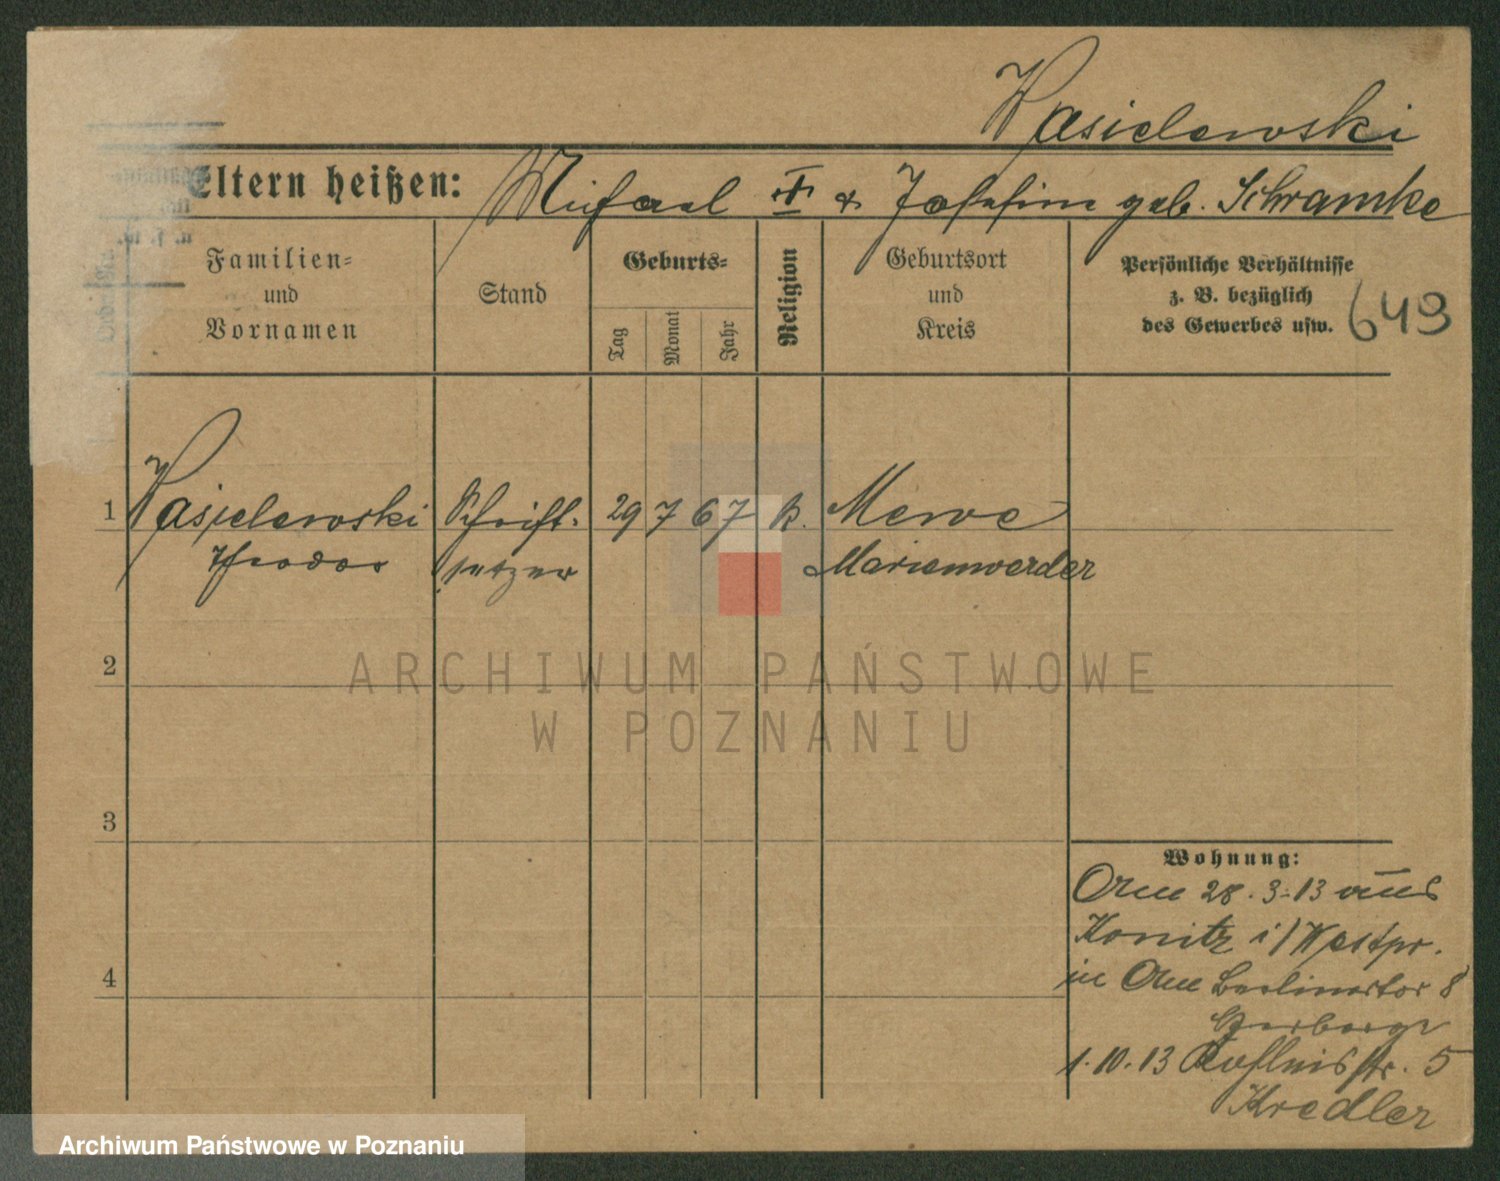 Wasielewski
Eltern heißen: Michael † & Josefine geb. Schramke
Familien=
und
Vornamen
Stand
Geburts=
Tag
Monat
Jahr
Religion
Geburtsort
und
Kreis
Persönliche Verhältnisse
z. B. bezüglich
des Gewerbes usw.
649
1 Wasielewski Schrift- 29 7 67 k. Mewe
Theodor setzer Marienwerder
2
3
4
Wohnung:
28.3.13 aus
Konitz i/Westpr.
in Berlinertor 8
1.10.13 str. 5
Kredler
ARCHIWUM PAŃSTWOWE
W POZNANIU
Archiwum Państwowe w Poznaniu